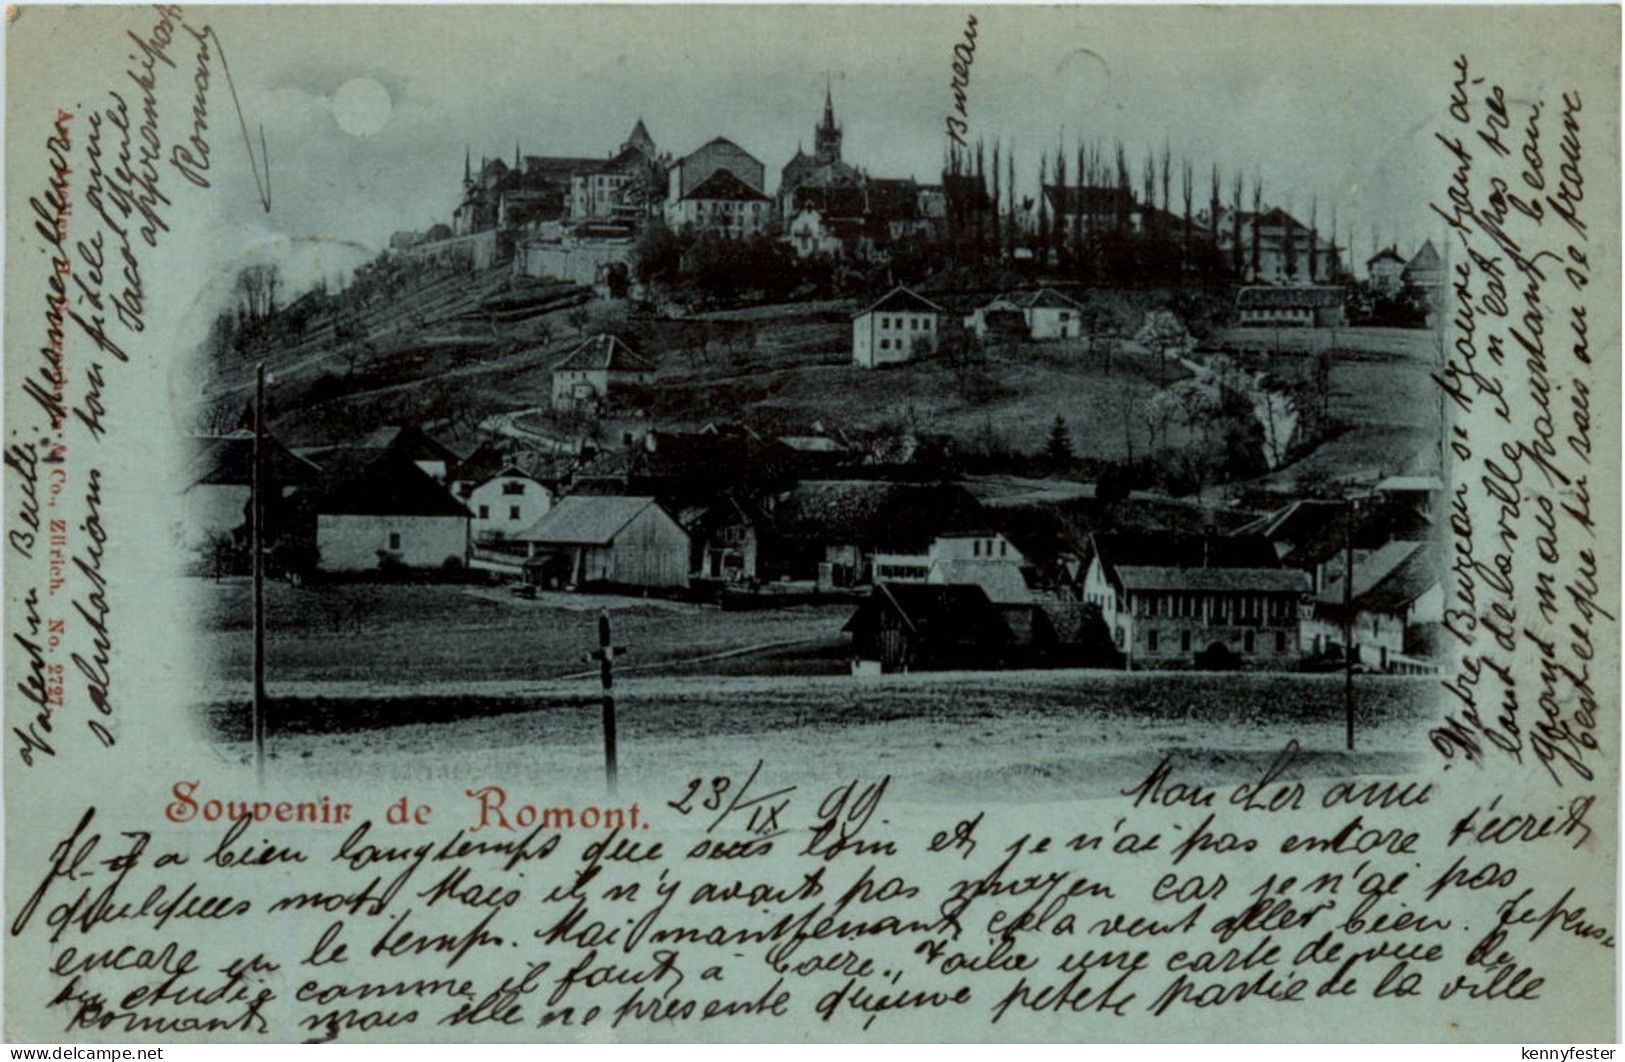 Souvenir de Romont.
23/IX 99
Mon cher ami
Il-y a bien longtemps que suis loin et je n'ai pas encore t'écrit
quelques mots. Mais il n'y avait pas moyen car je n'ai pas
encore eu le temps. Mai maintenant cela veut aller bien. Je pense
tu etudie comme il faut à . Voila une carte de vue de
Romont mais elle ne présente qu'une petete partie de la ville
Votre Bureau se trouve tout aire
tout de la ville il n'est pas très
grand mais pourtant beau.
C'est ce que tu vois au se trouve
Bureau
Valentin
salutations ton fidèle ami
Jacob
apprenti post
Romont
No. 2727
& Co., Zürich.
kennyfester
delcampe.net